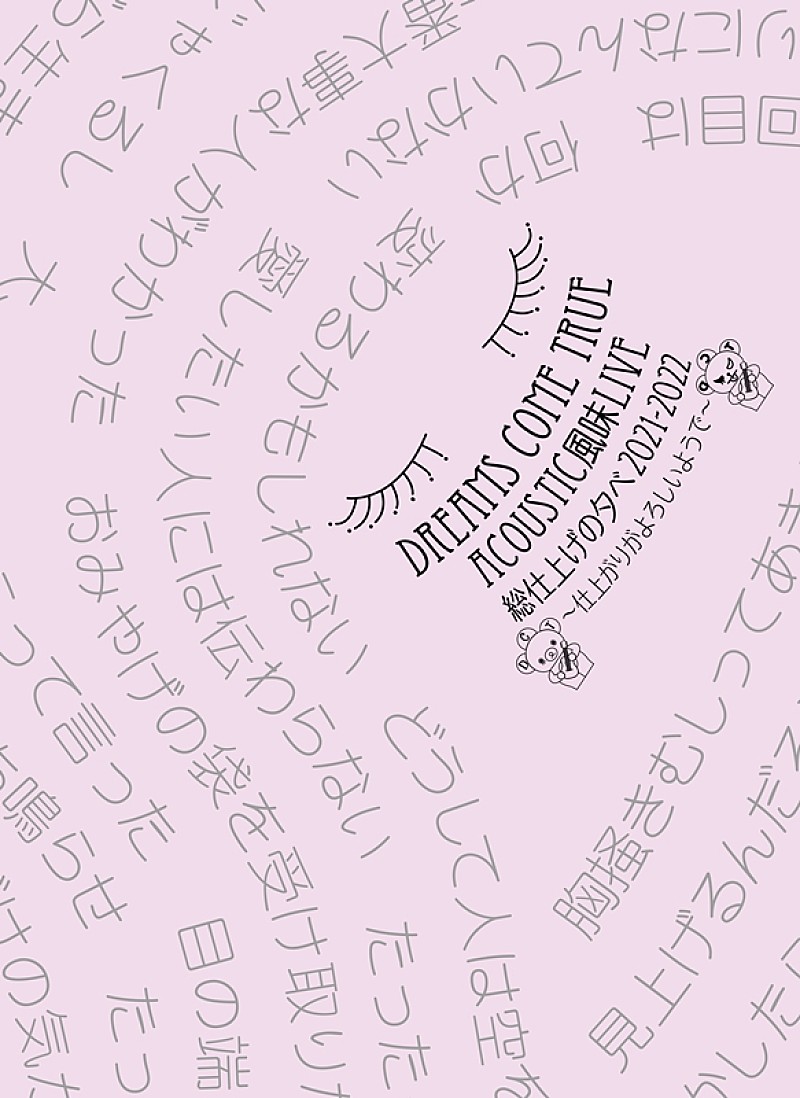 DREAMS COME TRUE
ACOUSTIC風味LIVE
総仕上げの夕べ2021-2022
~仕上がりがよろしいようで~
D C T
D C T
回目は
何か
変わるかもしれない
りになんていかない
愛したい人には伝わらない
番大事な人がわかった
おみやげの袋を受け取り
じゃくるし
ら生き
って言った
鳴らせ
けの気
たっ
目の端
たった
どうして人は空を
胸掻きむしってあき
見上げるんだろ
かした